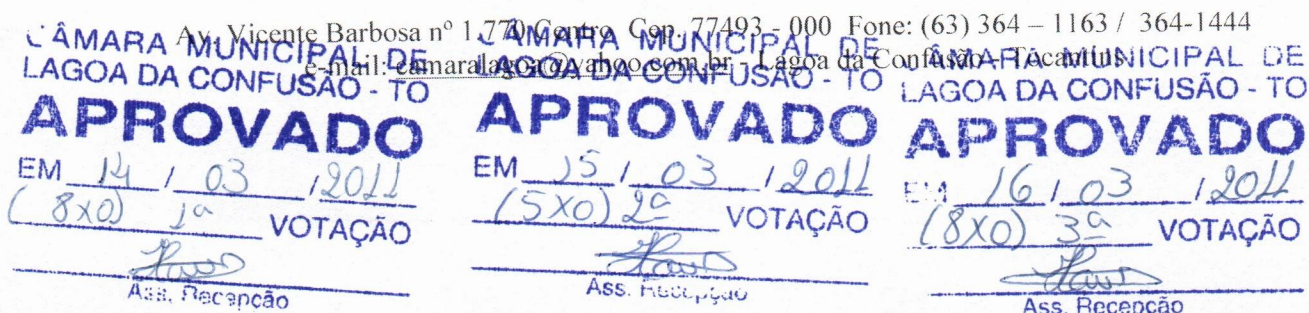 Av. Vicente Barbosa nº 1.770 Centro Cep. 77493 - 000 Fone: (63) 364 – 1163 / 364-1444
e-mail: camaralagoa@yahoo.com.br - Lagoa da Confusão - Tocantins
CÂMARA MUNICIPAL DE
LAGOA DA CONFUSÃO - TO
APROVADO
EM 14 / 03 / 2011
(8x0) 1ª VOTAÇÃO
Ass. Recepção
CÂMARA MUNICIPAL DE
LAGOA DA CONFUSÃO - TO
APROVADO
EM 15 / 03 / 2011
(5x0) 2ª VOTAÇÃO
Ass. Recepção
CÂMARA MUNICIPAL DE
LAGOA DA CONFUSÃO - TO
APROVADO
EM 16 / 03 / 2011
(8x0) 3ª VOTAÇÃO
Ass. Recepção